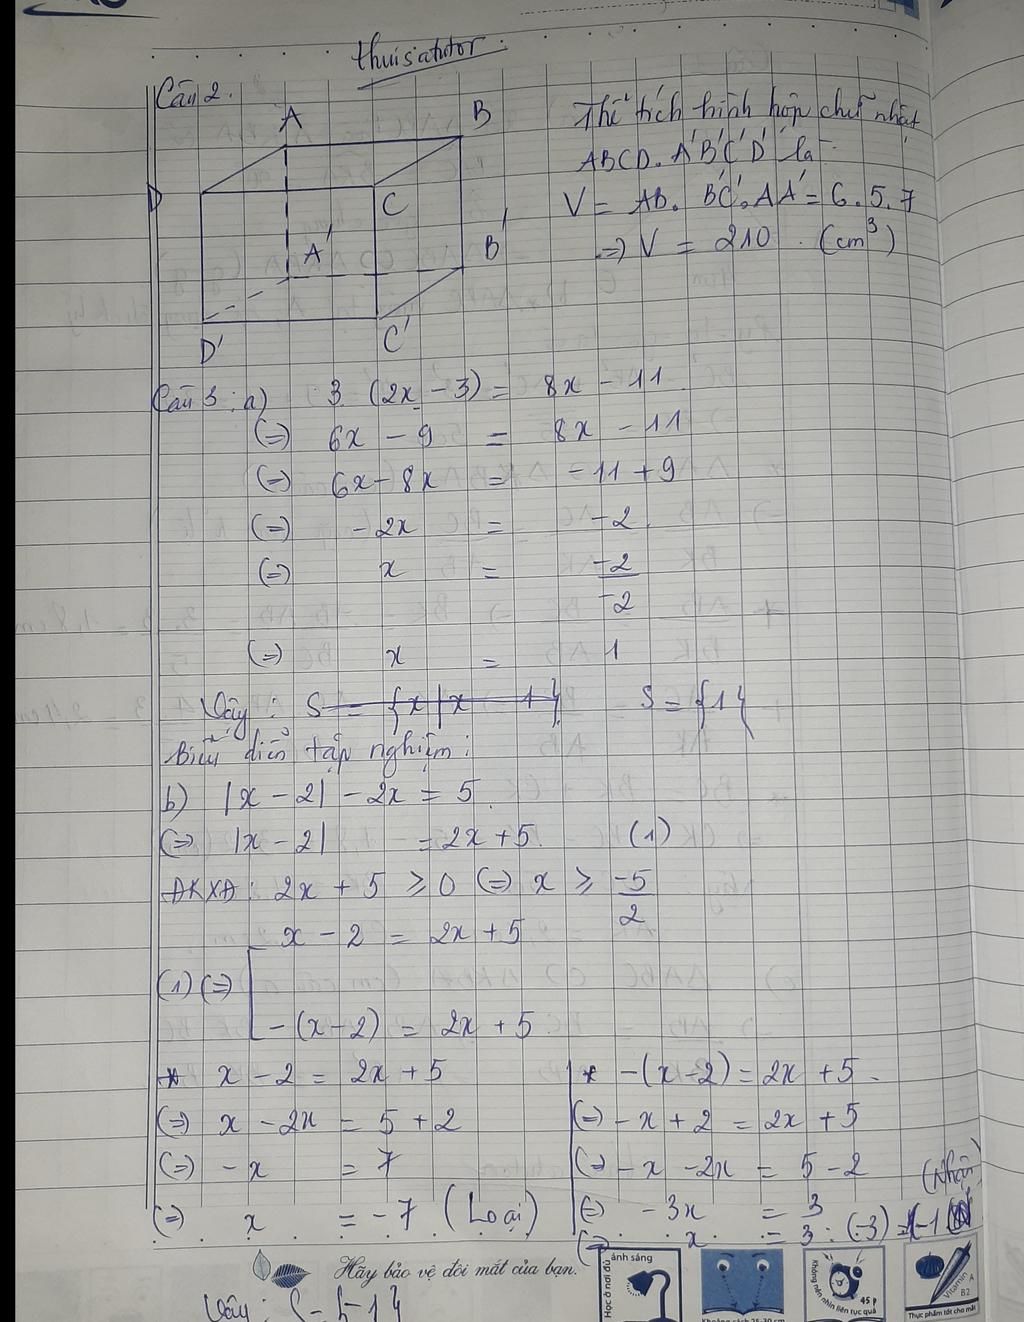 thuisatutor
Câu 2.
A
B
D
C
A'
B'
D'
C'
Thể tích hình hộp chữ nhật
ABCD.A'B'C'D' là
V = AB. B'C'. AA' = 6.5.7
=> V = 210 (cm³)
Câu 3: a) 3 (2x - 3) = 8x - 11
(=) 6x - 9 = 8x - 11
(=) 6x - 8x = -11 + 9
(=) -2x = -2
(=) x = -2/-2
(=) x = 1
Vậy: S = {x | x = 1} S = {1}
Biểu diễn tập nghiệm:
b) |x - 2| - 2x = 5
(=) |x - 2| = 2x + 5 (1)
ĐKXĐ: 2x + 5 ≥ 0 (=) x ≥ -5/2
x - 2 = 2x + 5
(1) (=)
-(x-2) = 2x + 5
* x - 2 = 2x + 5
(=) x - 2x = 5 + 2
(=) -x = 7
(=) x = -7 (Loại)
* -(x-2) = 2x + 5
(=) -x + 2 = 2x + 5
(=) -x - 2x = 5 - 2
(=) -3x = 3
(=) x = 3 : (-3) = -1 (Nhận)
Hãy bảo vệ đôi mắt của bạn.
Vậy: S = {-1}
Học ở nơi đủ
ánh sáng
Khoảng cách 25-30 cm
Không nên nhìn liên tục quá
45 P
Vitamin A
B2
Thực phẩm tốt cho mắt